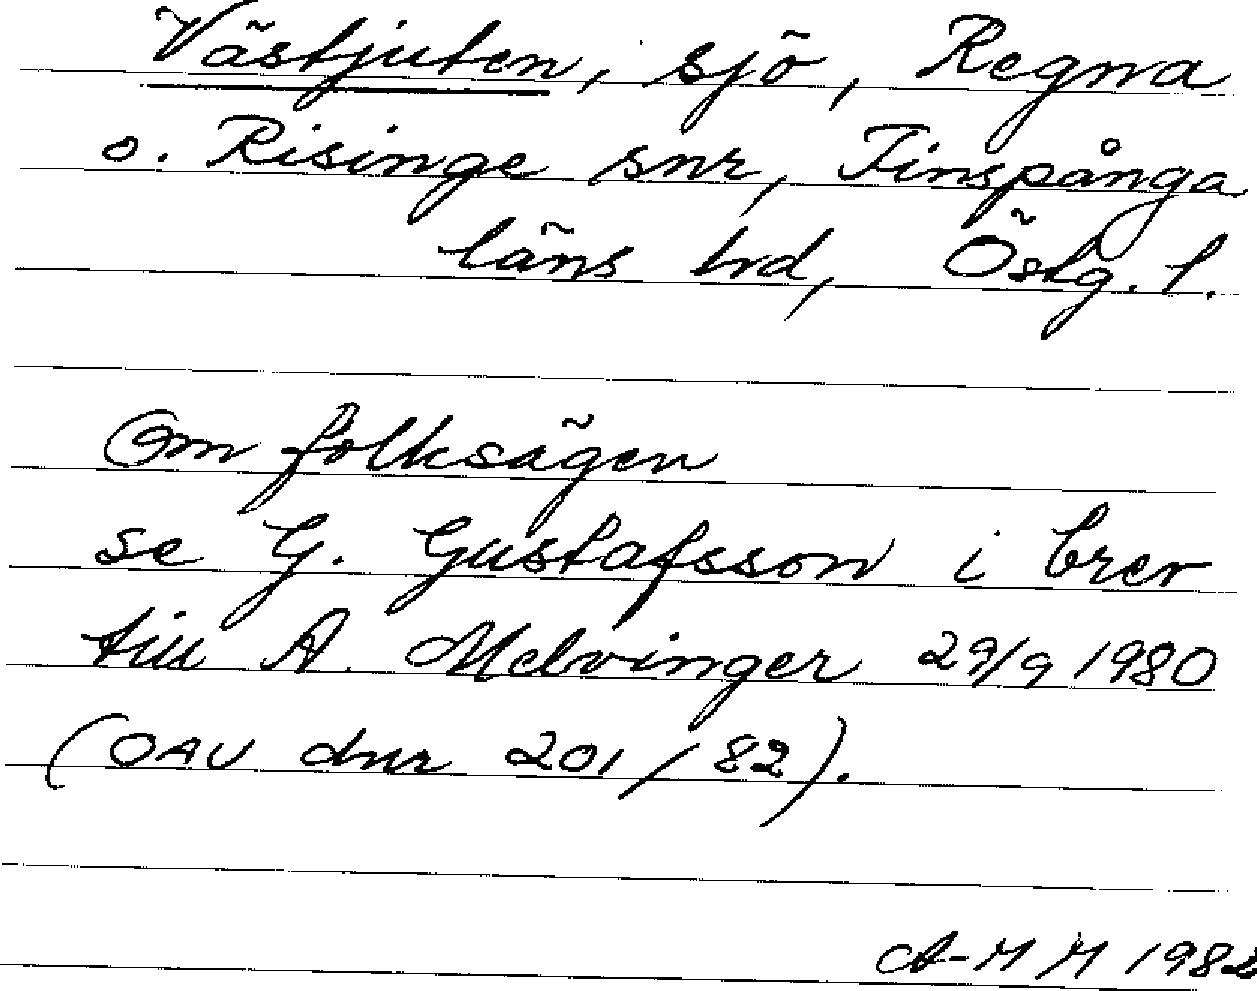 Västjuten, sjö, Regna
o. Risinge snr, Finspånga
läns hd, Östg. l.
Om folksägen
se G. Gustafsson i brev
till A. Melvinger 29/9 1980
(OAU dnr 201/82).
A-M M 1982